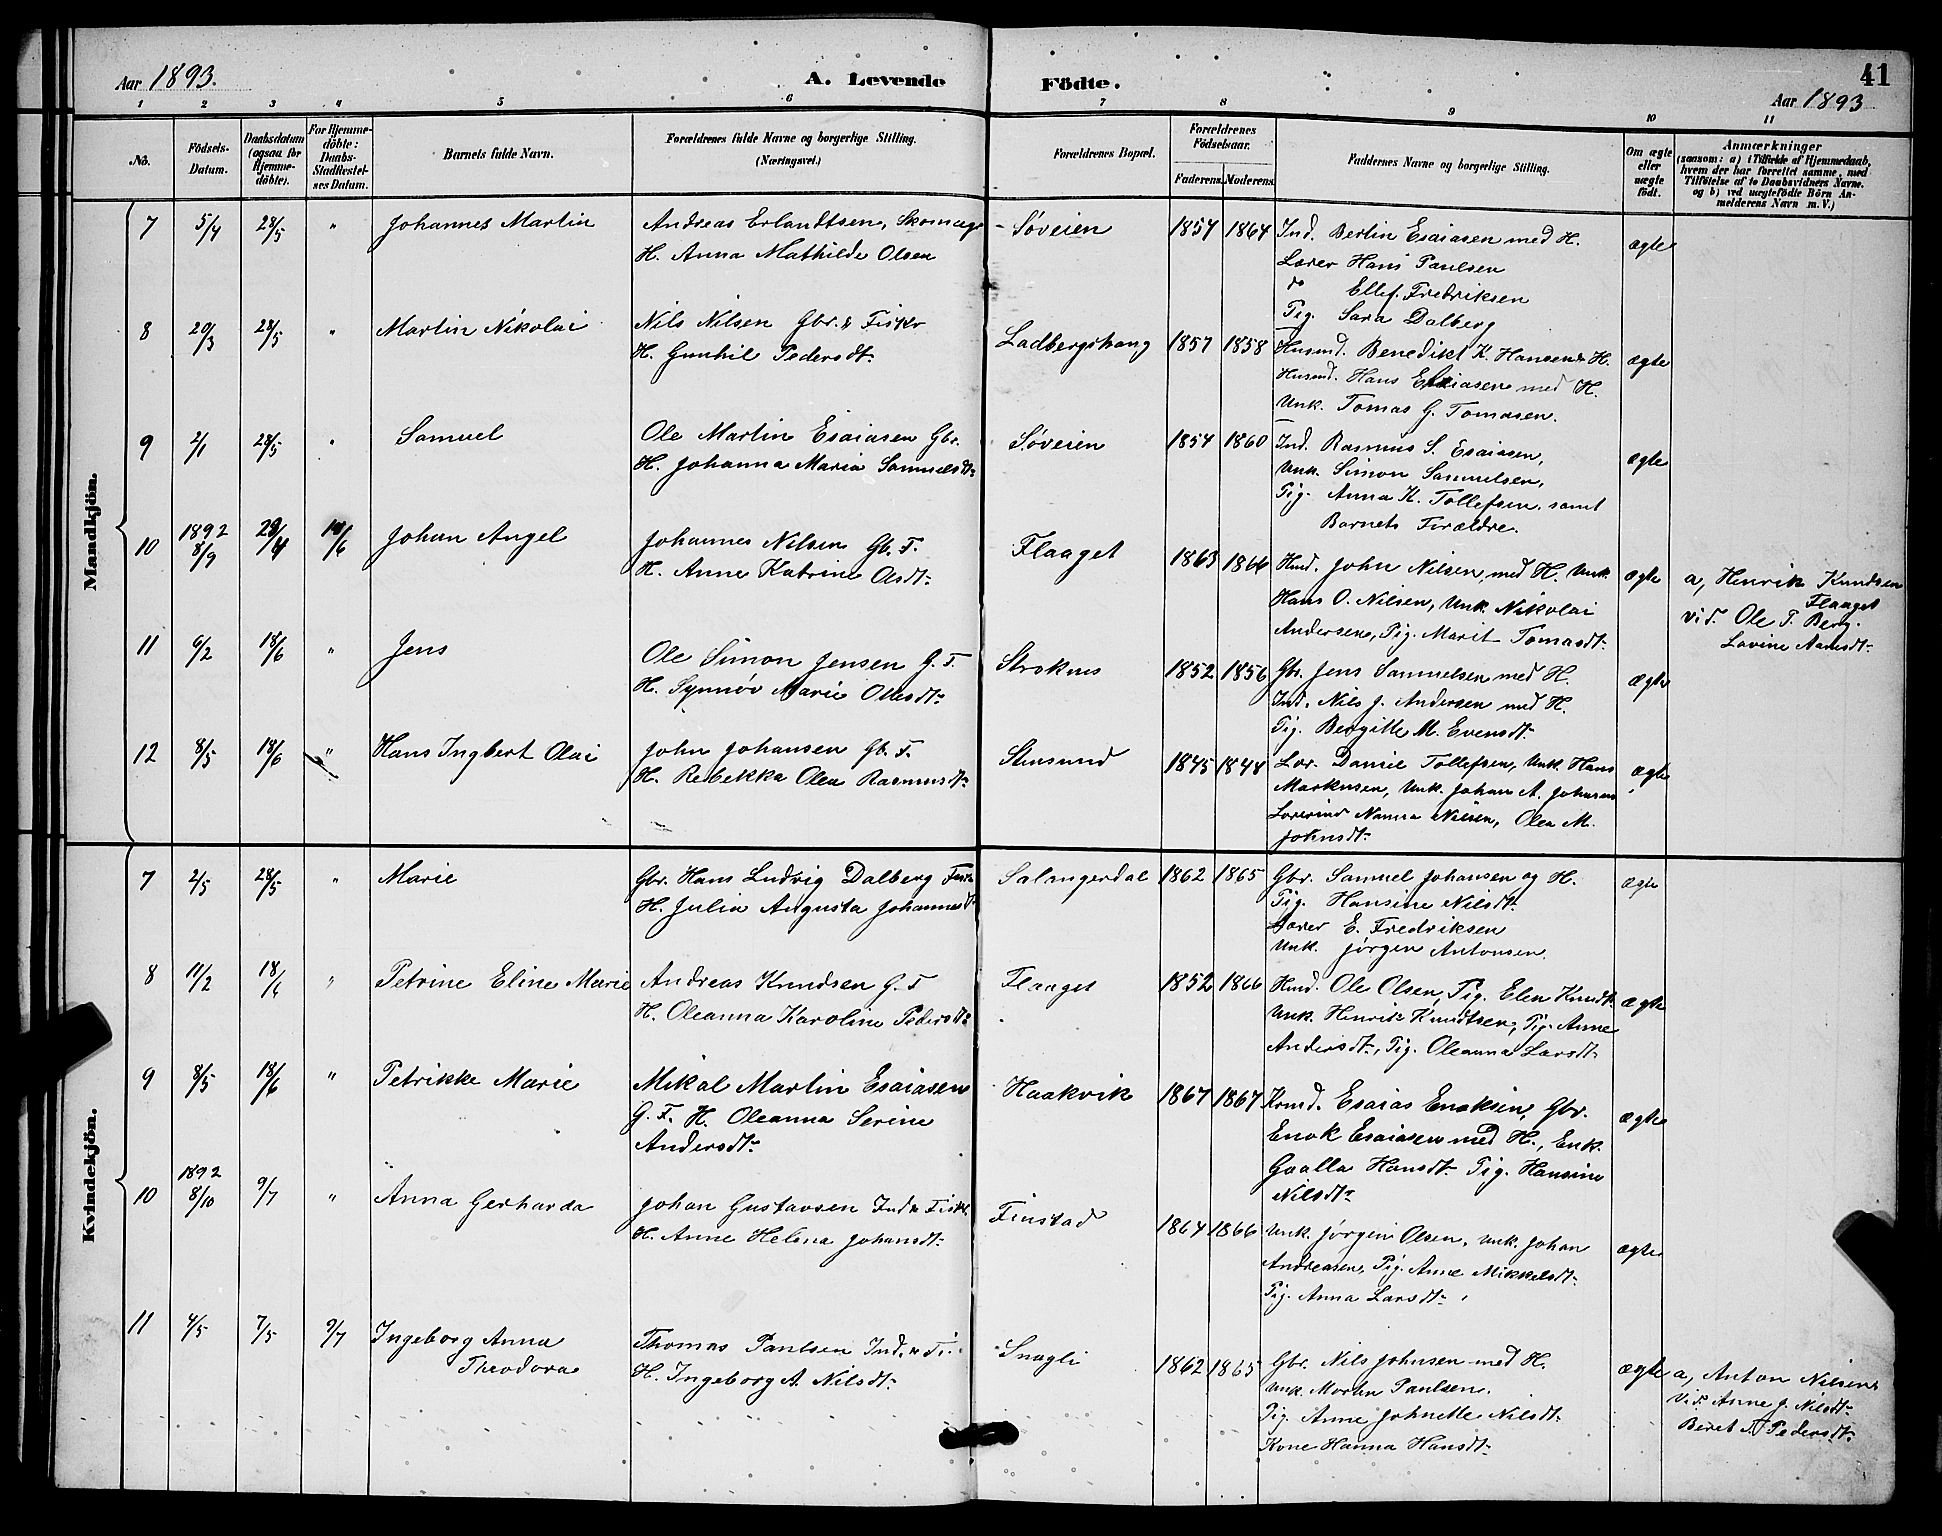 Aar 1893.
A. Levende
Födte.
41
Aar 1893
1 2 3 4 5 6 7 8 9 10 11
No.
Födsels-Datum.
Daabsdatum (ogsaa for Hjemme-döbte).
For Hjemme-döbte: Daabs-Stadfestel-ses Datum.
Barnets fulde Navn.
Forældrenes fulde Navne og borgerlige Stilling. (Næringsvei.)
Forældrenes Bopæl.
Forældrenes Födselsaar.
Faderens. Moderens.
Faddernes Navne og borgerlige Stilling.
Om ægte eller uægte födt.
Anmærkninger
(saasom: a) i Tilfælde af Hjemmedaab,
hvem der har forrettet samme, med
Tilföielse af to Daabsvidners Navne.
og b) ved uægtefödte Börn An-
melderens Navn m. V.)
Mandkjön.
7 5/4 28/5 " Johannes Martin
Andreas Erlandtsen, Skomager
H. Anna Mathilde Olsen
Søveien 1854 1864
Ind. Berlin Esaiasen med H.
Lærer Hans Paulsen
do Ellef. Fredriksen
Pig. Sara Dalberg
ægte
8 20/3 28/5 " Martin Nikolai
Nils Nilsen Gbr. & Fisker
H. Gunhil Pedersdt.
Ladbergstrang 1857 1858
Husmd. Benedikt K. Hansen & H.
Husmd. Hans Esaiasen med H.
Unk. Tomas G. Tomasen.
ægte
9 2/1 28/5 " Samuel
Ole Martin Esaiasen Gbr.
H. Johanna Maria Samuelsdt.
Søveien 1854 1860
Ind. Rasmus S. Esaiasen,
Unk. Simon Samuelsen,
Pig. Anna K. Tollefsen, samt
Barnets Forældre.
ægte
10 1892 8/9 Johan Angel
Johannes Nilsen Gb. F.
H. Anne Katrine Olsdt.
Flaaget 1863 1866
Husmd. John Nilsen med H. Unk.
Hans O. Nilsen, Unk. Nikolai
Andersen, Pig. Marit Tomasdt.
ægte
a, Henrik Knudsen
Flaaget
vid. Ole P. Berg.
Lovine Aamsdt.
11 6/2 18/6 " Jens
Ole Simon Jensen G. F.
H. Synnöv Marie Ollesdt.
Stroknes 1852 1856
Gbr. Jens Samuelsen med H.
Ind. Nils J. Andersen med H.
Pig. Bergitte M. Evensdt.
ægte
12 8/5 18/6 " Hans Ingbert Olai
John Johansen Gb. F.
H. Rebekka Olea Rasmusdt.
Stensund 1845 1844
Lær. Daniel Tollefsen, Unk. Hans
Markusen, Unk. Johan A. Johnsen
Lærerinde Nanna Nilsen, Olea M.
Johnsdt.
ægte
Kvindekjön.
7 2/5 28/5 " Marie
Gbr. Hans Ludvig Dalberg
H. Julia Augusta Johannesdt.
Salangerdal 1862 1865
Gbr. Samuel Johansen og H.
Pig. Hansine Nilsdt.
Lærer E. Fredriksen
Unk. Jørgen Antonsen.
ægte
8 11/2 18/6 " Petrine Eline Marie
Andreas Knudsen G. F
H. Oleanna Karoline Pedersdt.
Flaaget 1852 1866
Husmd. Ole Olsen, Pig. Elen Knudt.
Unk. Henrik Knudtsen, Pig. Anne
Andersdt., Pig. Oleanna Larsdt.
ægte
9 8/5 18/6 " Petrikke Marie
Mikal Martin Esaiasen
G. F. H. Oleanna Serine
Andersdt.
Haakvik 1867 1867
Husmd. Esaias Enoksen, Gbr.
Enok Esaiasen med H., Enk.
Gaalla Hansdt. Pig. Hansine
Nilsdt.
ægte
10 1892 8/10 9/7 " Anna Gerharda
Johan Gustavsen Ind & Fisk.
H. Anne Helena Johansdt.
Finstad 1864 1866
Unk. Jørgen Olsen, Unk. Johan
Andreasen, Pig. Anne Mikkelsdt.
Pig. Anna Larsdt.
ægte
11 4/5 7/5 9/7 Ingeborg Anna
Theodora
Thomas Paulsen Ind. & Fi.
H. Ingeborg A. Nilsdt.
Snagli 1862 1865
Gbr. Nils Johnsen med H.
Unk. Morten Paulsen.
Pig. Anne Johnette Nilsdt.
Kone Hanna Hansdt.
ægte
a, Anton Nilsen
Vid. Anne J. Nilsdt.
Beret A Pedersdt.